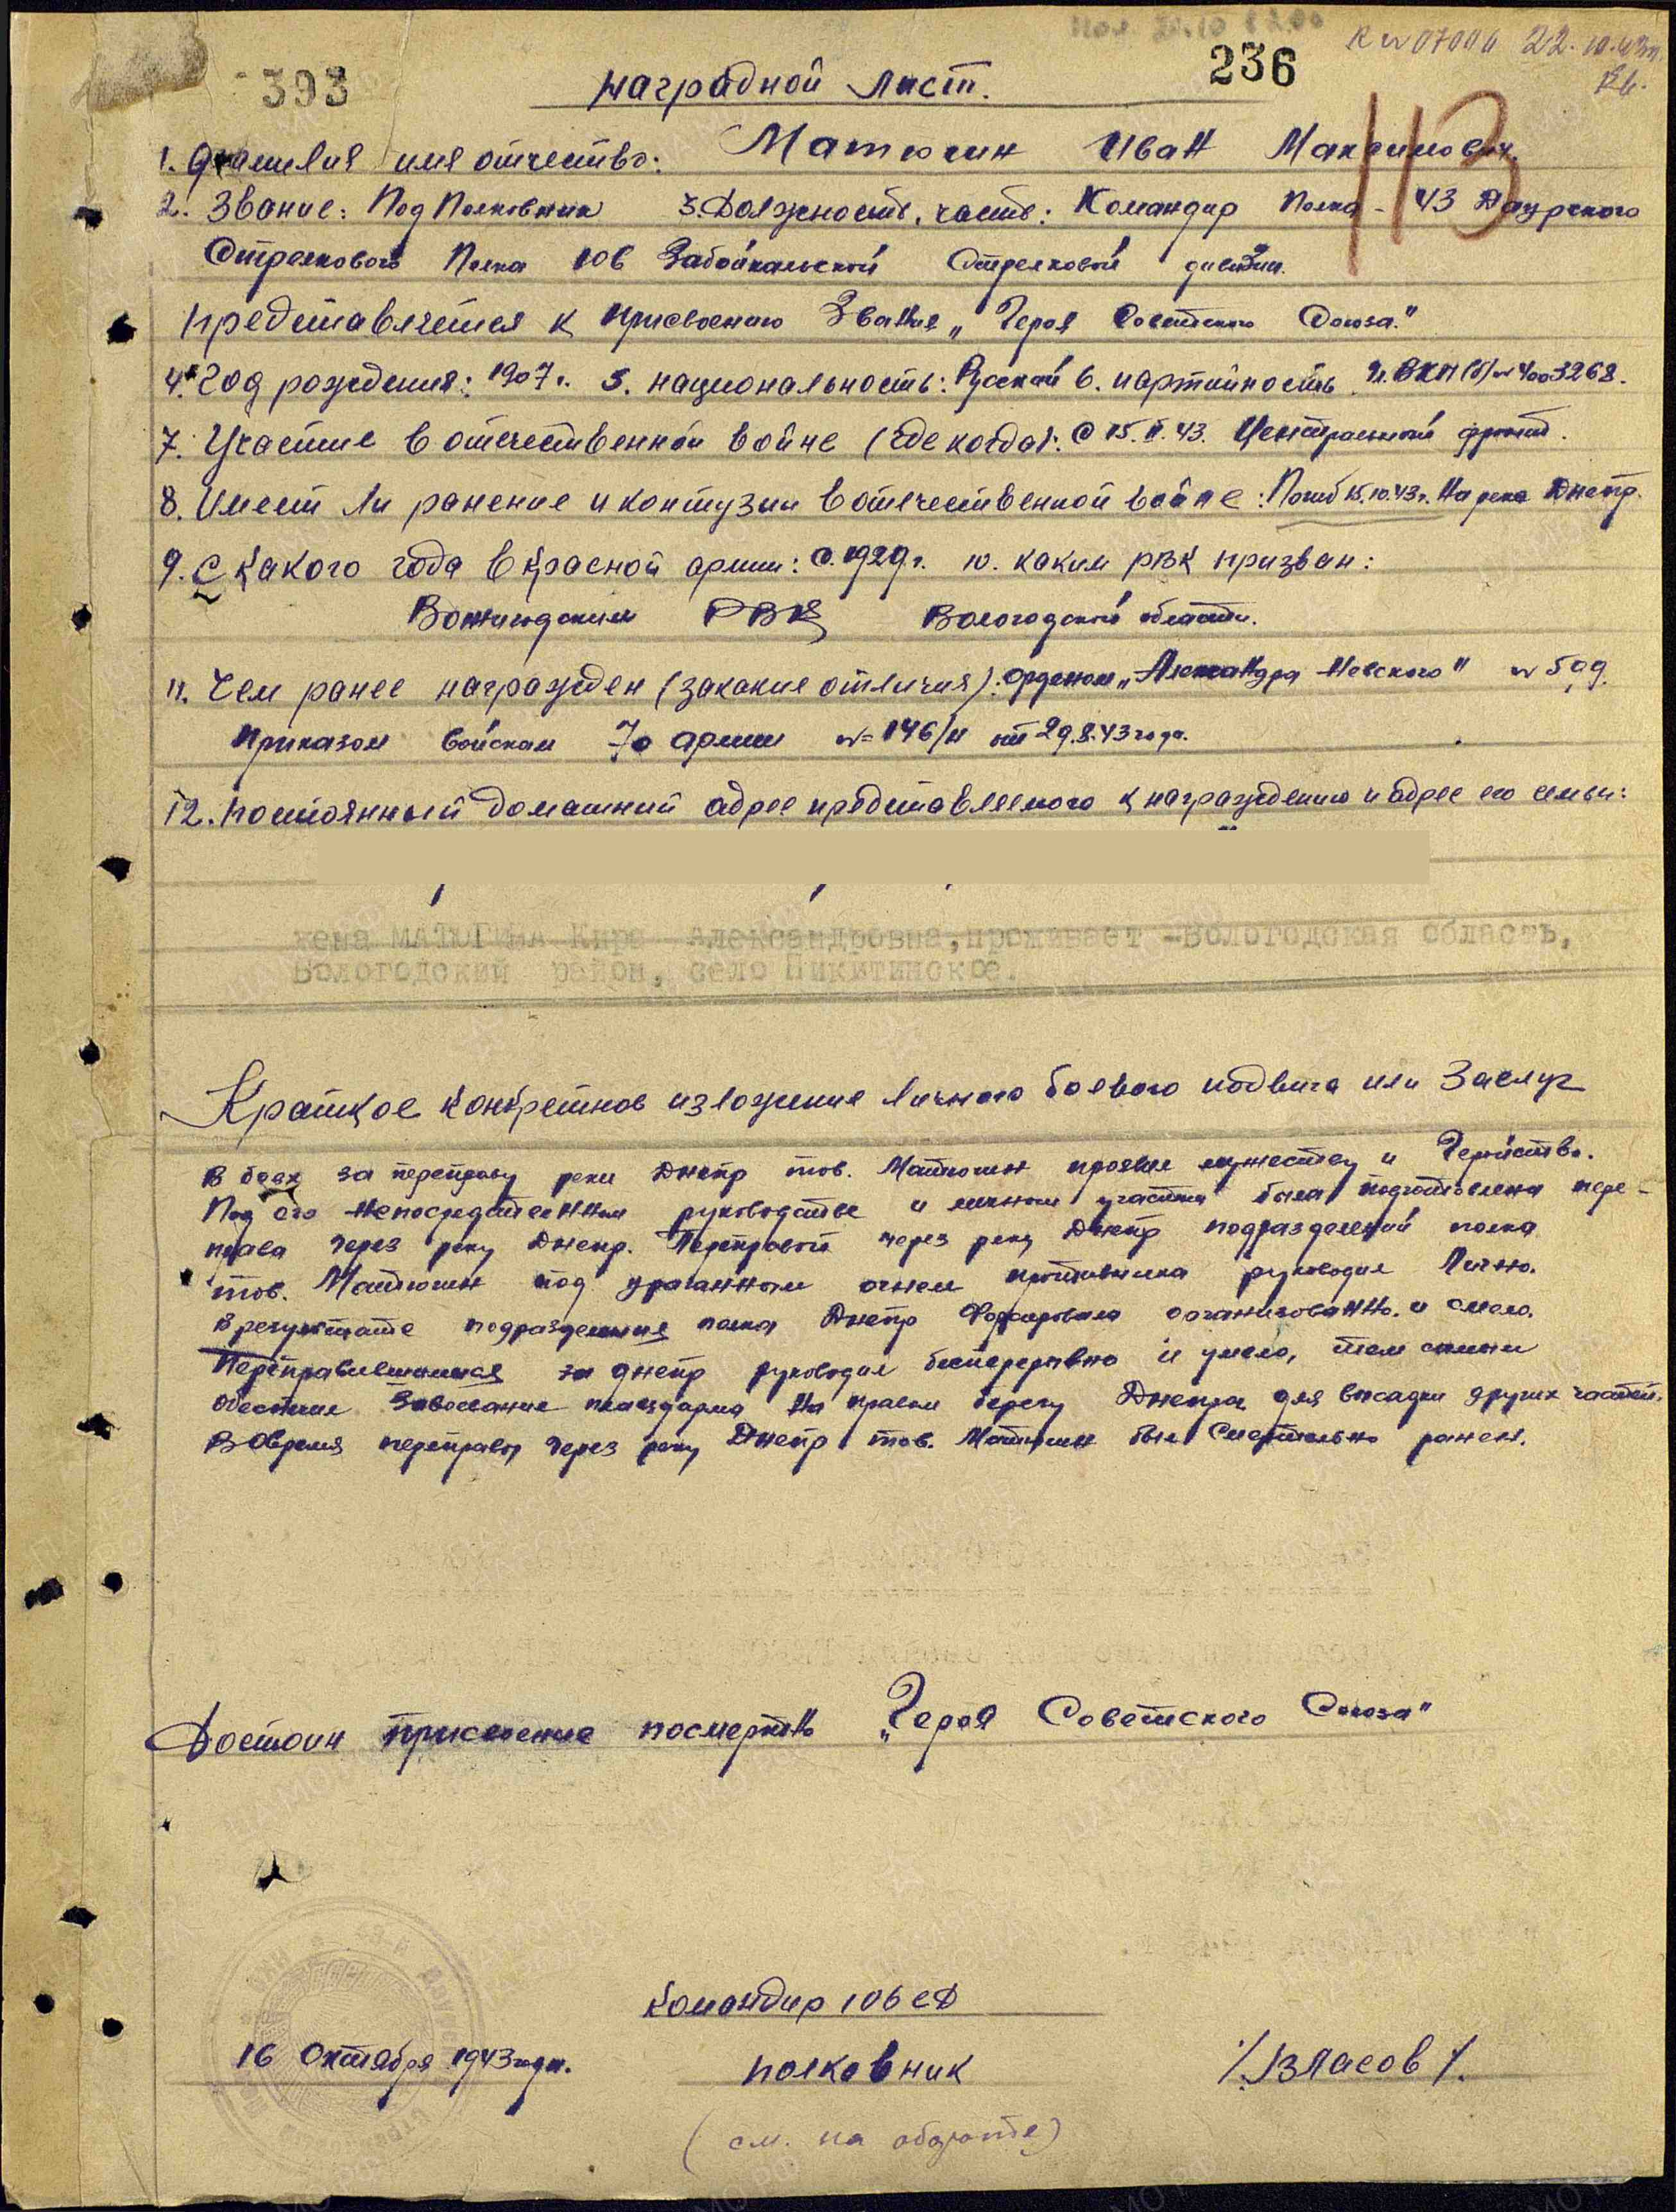 393
236
22.10.43г.
113
Наградной лист.
1. Фамилия имя отчество: Матюгин Иван Максимович.
2. Звание: Под Полковник 3. Должность, часть: Командир Полка - 43 Даурского
Стрелкового Полка 106 Забайкальской Стрелковой дивизии.
Представляется к присвоению Звания „Героя Советского Союза."
4. Год рождения: 1907 г. 5. национальность: Русский 6. партийность Чл. ВКП(б) № 4003268.
7. Участие в отечественной войне (где когда): С 15.II.43. Центральный фронт.
8. Имеет ли ранение и контузии в отечественной войне: Погиб 15.10.43г. На реке Днепр.
9. С какого года в красной армии: С 1929г. 10. каким РВК призван:
Вожегодским РВК Вологодской области.
11. Чем ранее награжден (за какие отличия): Орденом „Александра Невского" № 509.
Приказом войскам 70 армии №=146/н от 29.8.43 года.
12. Постоянный домашний адрес представляемого к награждению и адрес его семьи:
жена МАТЮГИНА Кира Александровна, проживает -Вологодская область,
Вологодский район, село Никитинское.
Краткое конкретное изложение личного боевого подвига или заслуг
В боях за переправу реки Днепр тов. Матюгин проявил мужество и Геройство.
Под его непосредственным руководстве и личном участии была подготовлена пере-
права через реку Днепр. Переправой через реку Днепр подразделений полка
тов. Матюгин под ураганным огнем противника руководил Лично.
В результате подразделения полка Днепр Форсировали организованно и смело.
Переправившимися за Днепр руководил беспрерывно и умело, тем самым
обеспечил Завоевание плацдарма На правом берегу Днепра для высадки других частей.
Вовремя переправы через реку Днепр тов. Матюгин был Смертельно ранен.
Достоин присвоение посмертно „Героя Советского Союза"
Командир 106 СД
16 Октября 1943 года. полковник /Власов/.
(см. на обороте)